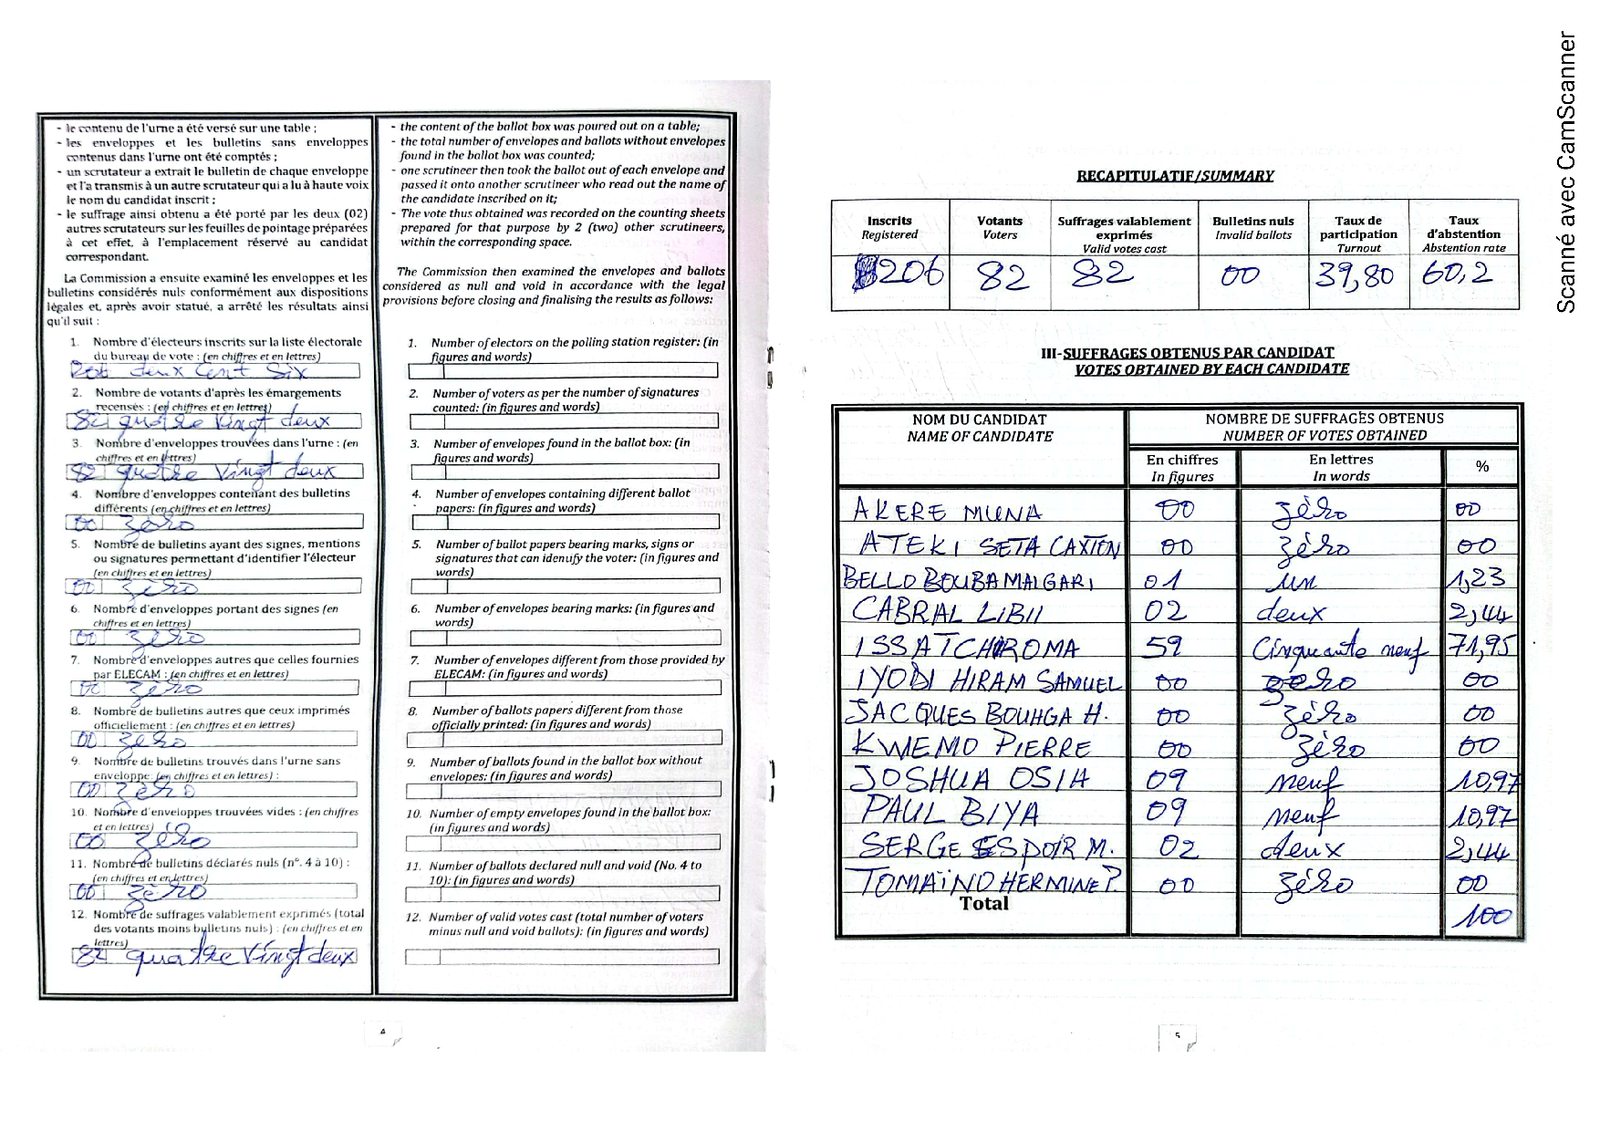 - le contenu de l'urne a été versé sur une table ;
- les enveloppes et les bulletins sans enveloppes
contenus dans l'urne ont été comptés ;
- un scrutateur a extrait le bulletin de chaque enveloppe
et l'a transmis à un autre scrutateur qui a lu à haute voix
le nom du candidat inscrit ;
- le suffrage ainsi obtenu a été porté par les deux (02)
autres scrutateurs sur les feuilles de pointage préparées
à cet effet, à l'emplacement réservé au candidat
correspondant.
La Commission a ensuite examiné les enveloppes et les
bulletins considérés nuls conformément aux dispositions
légales et, après avoir statué, a arrêté les résultats ainsi
qu'il suit :
1. Nombre d'électeurs inscrits sur la liste électorale
du bureau de vote : (en chiffres et en lettres)
206 deux Cent Six
2. Nombre de votants d'après les émargements
recensés : (en chiffres et en lettres)
82 quatre vingt deux
3. Nombre d'enveloppes trouvées dans l'urne : (en
chiffres et en lettres)
82 quatre vingt deux
4. Nombre d'enveloppes contenant des bulletins
différents (en chiffres et en lettres)
00 zéro
5. Nombre de bulletins ayant des signes, mentions
ou signatures permettant d'identifier l'électeur
(en chiffres et en lettres)
00 zéro
6. Nombre d'enveloppes portant des signes (en
chiffres et en lettres)
00 zéro
7. Nombre d'enveloppes autres que celles fournies
par ELECAM : (en chiffres et en lettres)
00 zéro
8. Nombre de bulletins autres que ceux imprimés
officiellement : (en chiffres et en lettres)
00 zéro
9. Nombre de bulletins trouvés dans l'urne sans
enveloppe: (en chiffres et en lettres) :
00 zéro
10. Nombre d'enveloppes trouvées vides : (en chiffres
et en lettres)
00 zéro
11. Nombre de bulletins déclarés nuls (n°. 4 à 10) :
(en chiffres et en lettres)
00 zéro
12. Nombre de suffrages valablement exprimés (total
des votants moins bulletins nuls) : (en chiffres et en
lettres)
82 quatre vingt deux
- the content of the ballot box was poured out on a table;
- the total number of envelopes and ballots without envelopes
found in the ballot box was counted;
- one scrutineer then took the ballot out of each envelope and
passed it onto another scrutineer who read out the name of
the candidate inscribed on it;
- The vote thus obtained was recorded on the counting sheets
prepared for that purpose by 2 (two) other scrutineers,
within the corresponding space.
The Commission then examined the envelopes and ballots
considered as null and void in accordance with the legal
provisions before closing and finalising the results as follows:
1. Number of electors on the polling station register: (in
figures and words)
2. Number of voters as per the number of signatures
counted: (in figures and words)
3. Number of envelopes found in the ballot box: (in
figures and words)
4. Number of envelopes containing different ballot
papers: (in figures and words)
5. Number of ballot papers bearing marks, signs or
signatures that can identify the voter: (in figures and
words)
6. Number of envelopes bearing marks: (in figures and
words)
7. Number of envelopes different from those provided by
ELECAM: (in figures and words)
8. Number of ballots papers different from those
officially printed: (in figures and words)
9. Number of ballots found in the ballot box without
envelopes: (in figures and words)
10. Number of empty envelopes found in the ballot box:
(in figures and words)
11. Number of ballots declared null and void (No. 4 to
10): (in figures and words)
12. Number of valid votes cast (total number of voters
minus null and void ballots): (in figures and words)
4
RECAPITULATIF/SUMMARY
Inscrits Votants Suffrages valablement exprimés Bulletins nuls Taux de participation Taux d'abstention
Registered Voters Valid votes cast Invalid ballots Turnout Abstention rate
206 82 82 00 39,80 60,2
III-SUFFRAGES OBTENUS PAR CANDIDAT
VOTES OBTAINED BY EACH CANDIDATE
NOM DU CANDIDAT NOMBRE DE SUFFRAGES OBTENUS
NAME OF CANDIDATE NUMBER OF VOTES OBTAINED
En chiffres En lettres %
In figures In words
AKERE MUNA 00 zéro 00
ATEKI SETA CAXTON 00 zéro 00
BELLO BOUBA MAIGARI 01 un 1,23
CABRAL LIBII 02 deux 2,44
ISSA TCHIROMA 59 Cinquante neuf 71,95
IYODI HIRAM SAMUEL 00 zéro 00
JACQUES BOUHGA H. 00 zéro 00
KWEMO PIERRE 00 zéro 00
JOSHUA OSIH 09 neuf 10,97
PAUL BIYA 09 neuf 10,97
SERGE ESPOIR M. 02 deux 2,44
TOMAÏNO HERMINE P. 00 zéro 00
Total 100
5
Scanné avec CamScanner